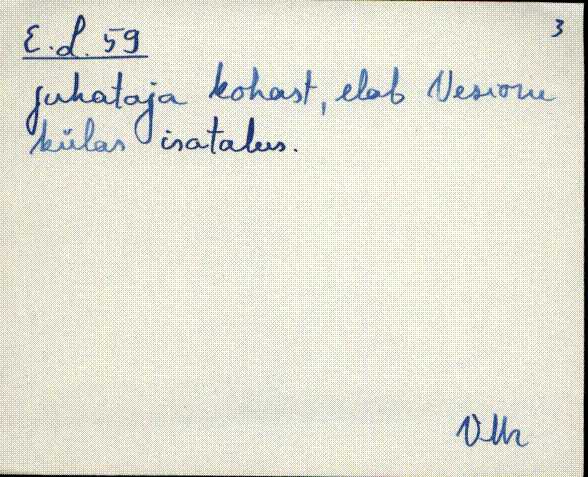 3
E. L. 59
juhataja kohast, elab Vesioru
külas isatalus.
VMr